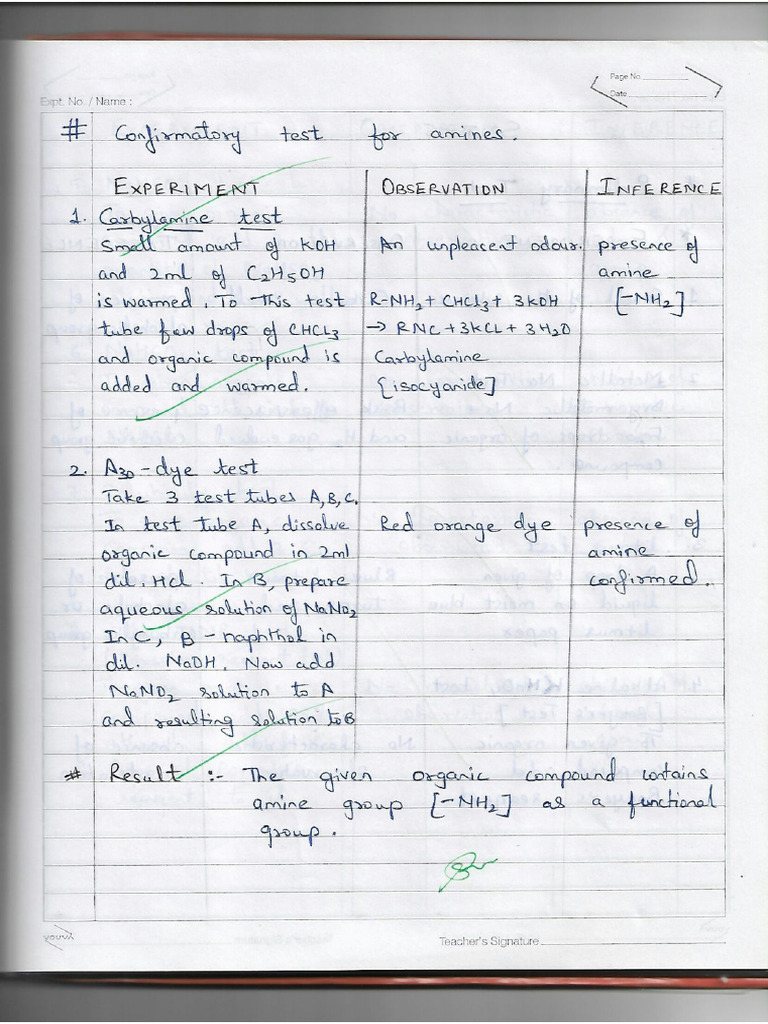 Page No.
Date
Expt. No. / Name :
# Confirmatory test for amines.
EXPERIMENT
1. Carbylamine test
Small amount of KOH
and 2ml of C2H5OH
is warmed. To this test
tube few drops of CHCl3
and organic compound is
added and warmed.
2. Azo-dye test
Take 3 test tubes A, B, C.
In test tube A, dissolve
organic compound in 2ml
dil. HCl. In B, prepare
aqueous solution of NaNO2
In C, B-naphthol in
dil. NaOH. Now add
NaNO2 solution to A
and resulting solution to B
OBSERVATION
An unpleasent odour.
R-NH2 + CHCl3 + 3KOH
→ RNC + 3KCL + 3H2O
Carbylamine
[isocyanide]
Red orange dye
INFERENCE
presence of
amine
[-NH2]
presence of
amine
confirmed.
# Result :- The given organic compound contains
amine group [-NH2] as a functional
group.
youva
Teacher's Signature